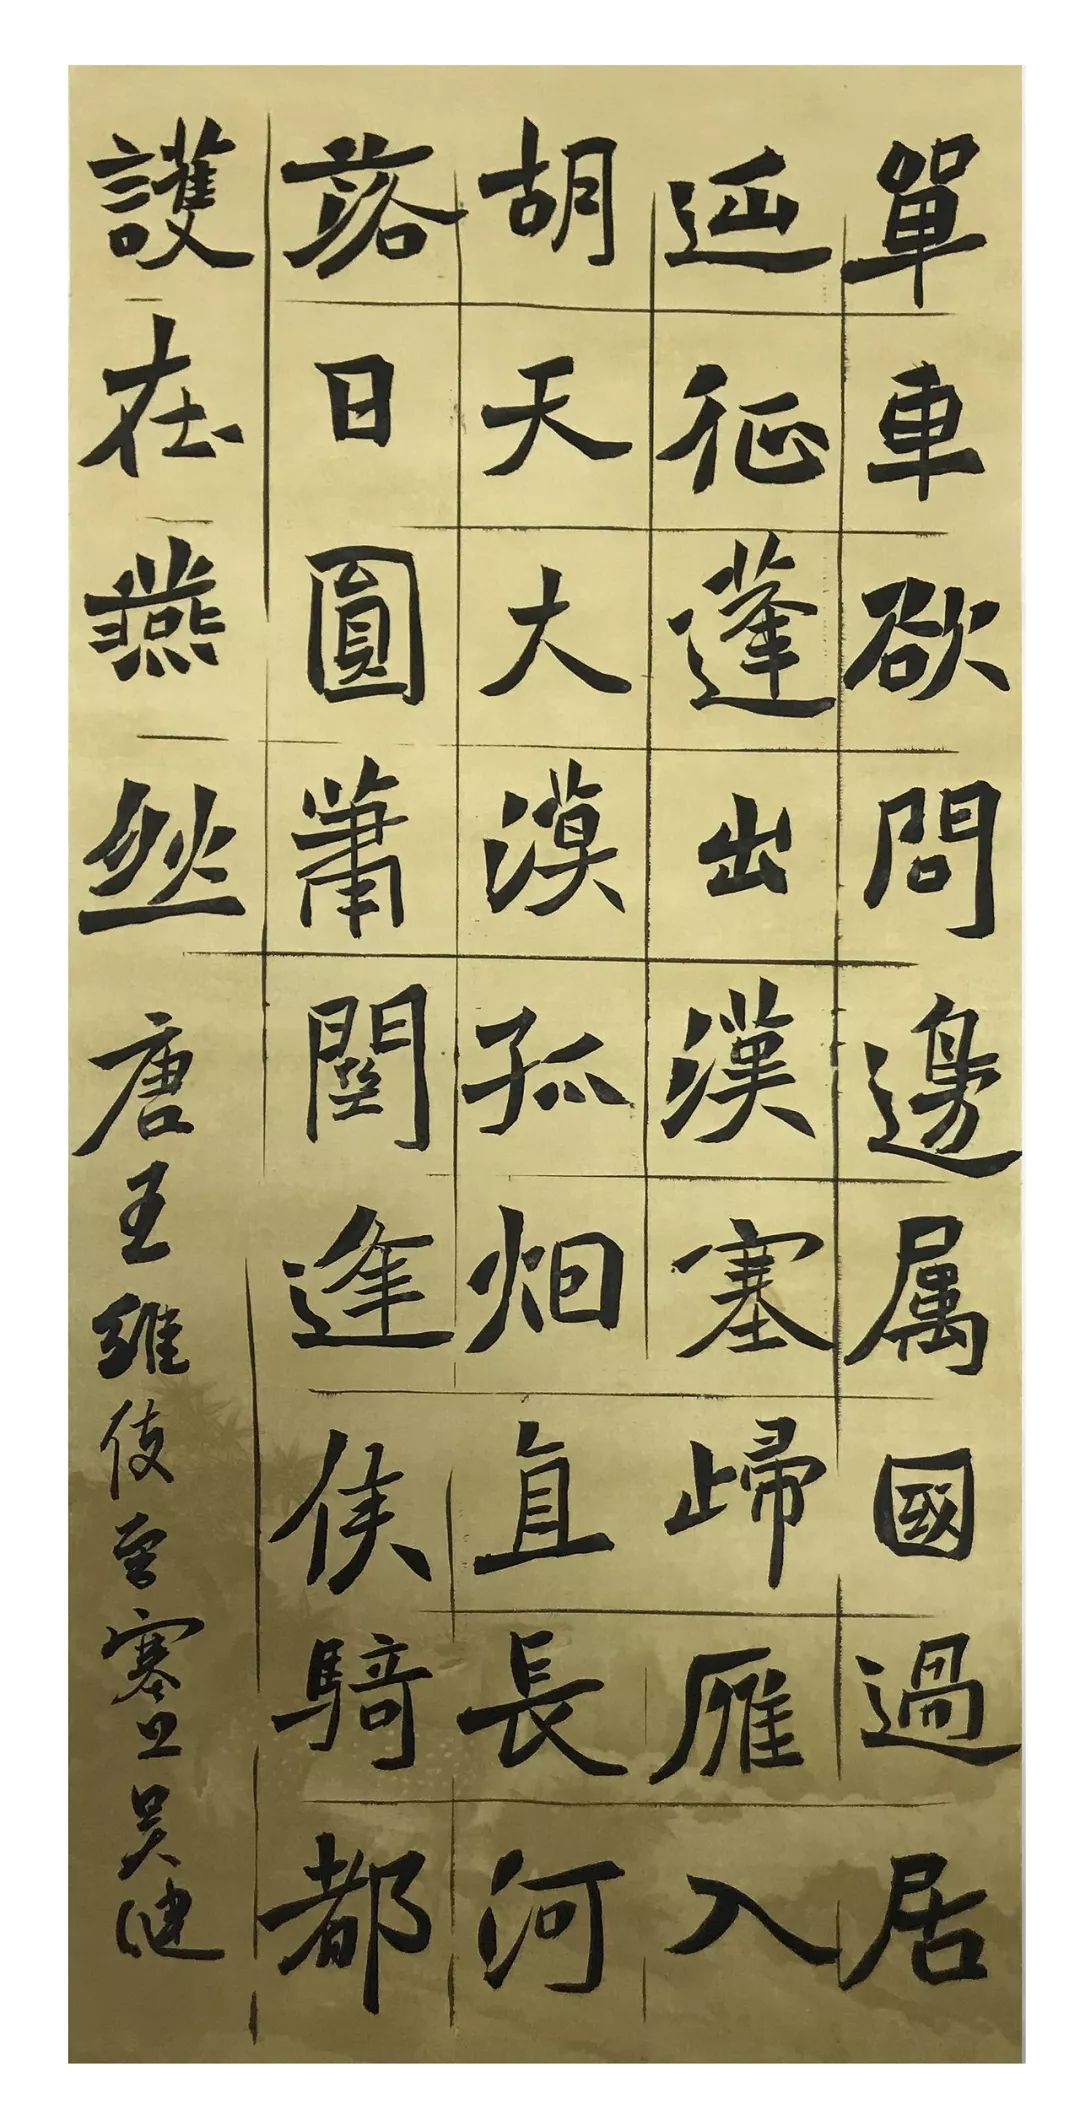 單車欲問邊属國過居
延征蓬出漢塞歸雁入
胡天大漠孤烟直長河
落日圓蕭關逢侯騎都
護在燕然 唐王維使至塞上吴